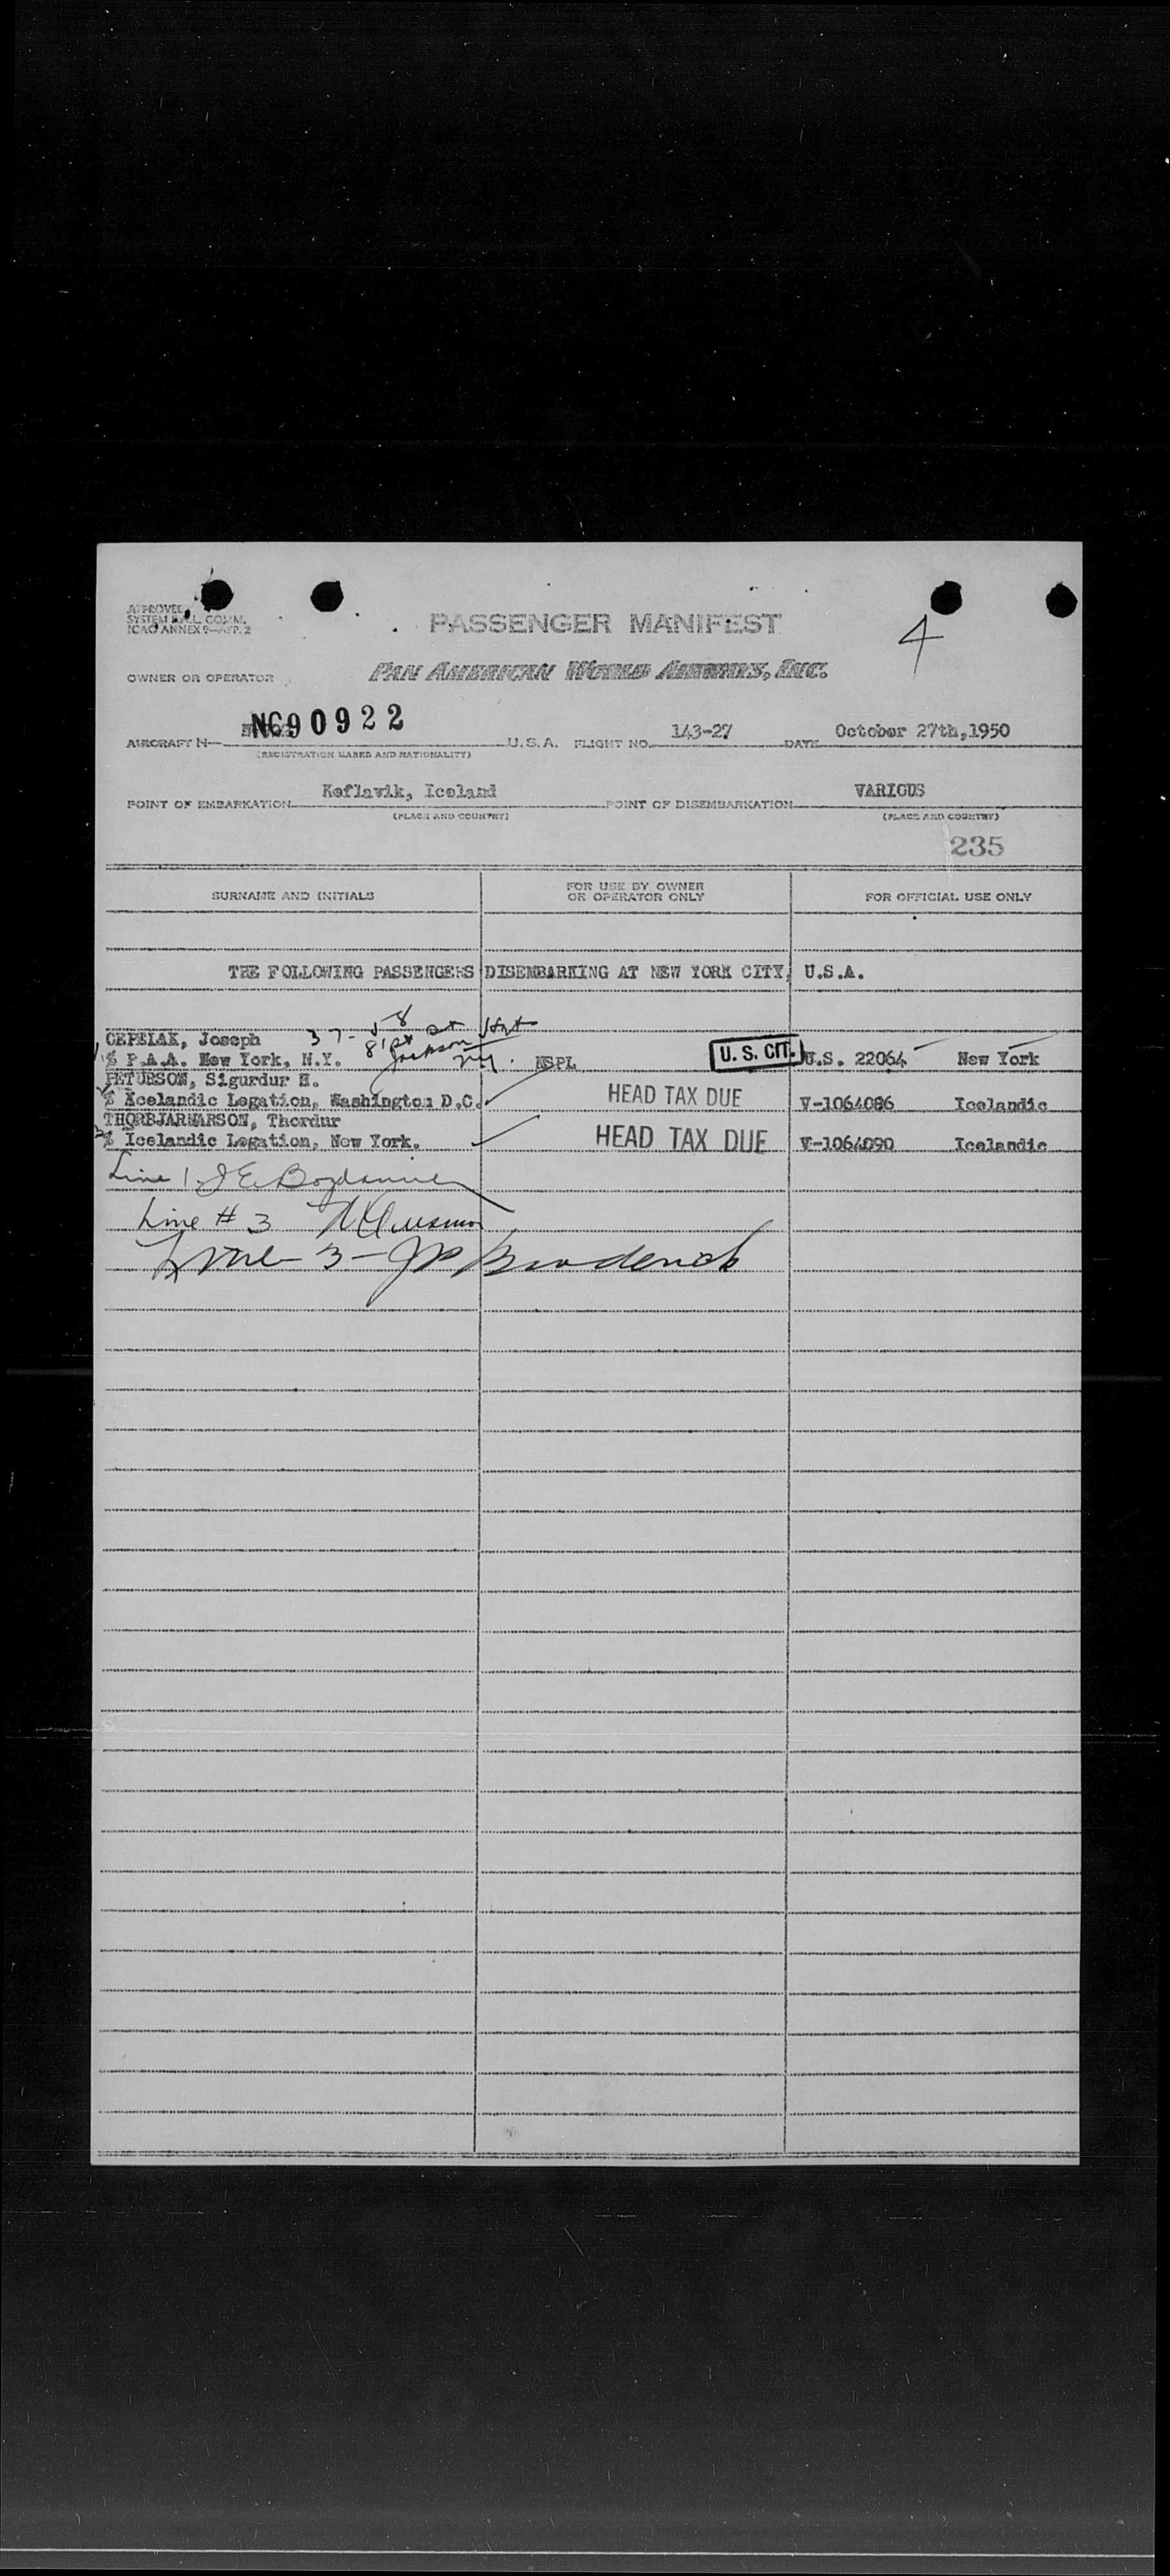 APPROVED
SYSTEM MALL. COMM.
ICAO ANNEX 9—APP. 2
PASSENGER MANIFEST
4
OWNER OR OPERATOR
PAN AMERICAN WORLD AIRWAYS, INC.
AIRCRAFT N— NC90922 U.S.A. FLIGHT NO. 143-27 DATE October 27th,1950
(REGISTRATION MARKS AND NATIONALITY)
POINT OF EMBARKATION Keflavik, Iceland POINT OF DISEMBARKATION VARIOUS
(PLACE AND COUNTRY) (PLACE AND COUNTRY)
235
SURNAME AND INITIALS FOR USE BY OWNER OR OPERATOR ONLY FOR OFFICIAL USE ONLY
THE FOLLOWING PASSENGERS DISEMBARKING AT NEW YORK CITY, U.S.A.
CEPELAK, Joseph 37-58 81 st Jackson Hgt
% P.A.A. New York, N.Y. NY. NSPL U. S. CIT. U.S. 22064 New York
PETURSON, Sigurdur H.
% Icelandic Legation, Washington D.C. HEAD TAX DUE V-1064086 Icelandic
THORBJARNARSON, Thordur
% Icelandic Legation, New York. HEAD TAX DUE V-1064090 Icelandic
Line 1 J E
Line # 3
Line 3 - Broderick